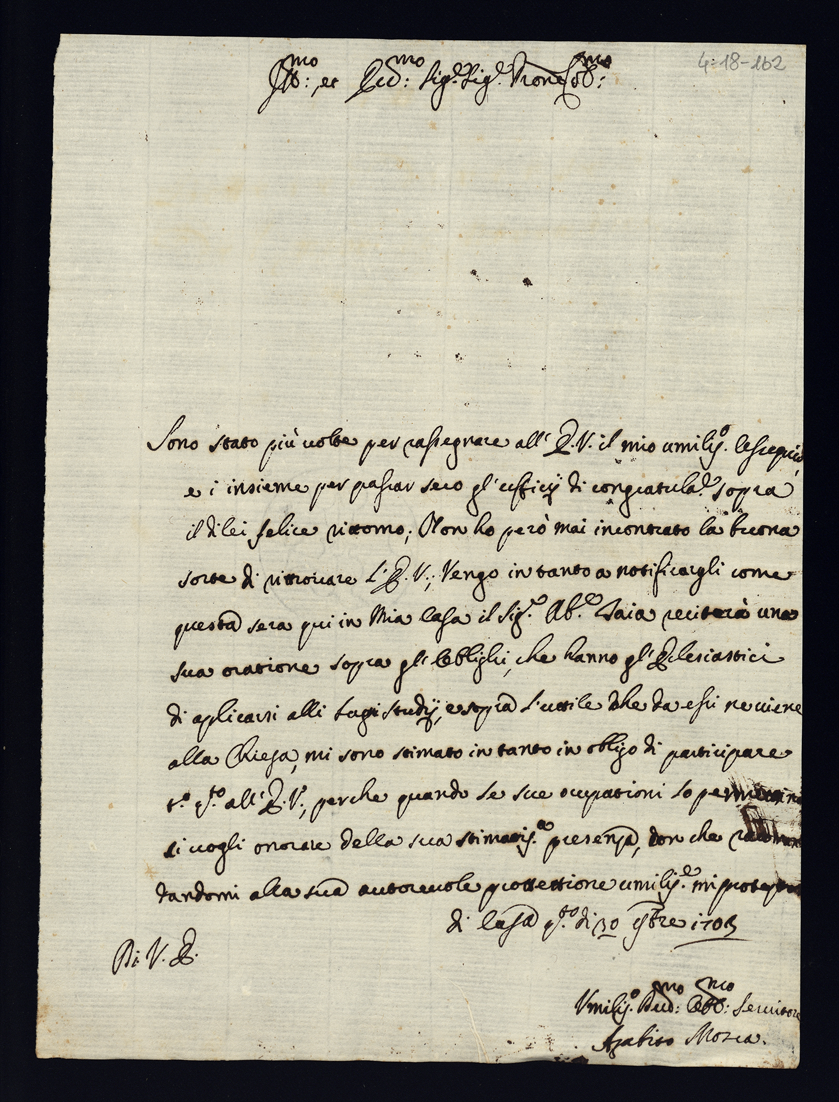 4-18-162
Ill.mo: et Rev.mo: Sig.r Sig.r Pron Col.mo:
Sono stato più volte per rassegnare all' E. V. il mio umiliss.o ossequio,
e i insieme per passar seco gl' ufficij di congratula.e sopra
il di lei felice ritorno; Non ho però mai incontrato la buona
sorte di ritrovare L' E. V.; Vengo in tanto a notificargli come
questa sera qui in Mia Casa il Sig.r Ab.e Isaia reciterà una
sua oratione sopra gl' oblighi, che hanno gl' Eclesiastici
di aplicarsi alli studij, e sopra l' utile che da essi ne viene
alla Chiesa, mi sono stimato in tanto in obligo di participare
all' E. V., perche quando le sue ocupationi lo
si vogli onorare della sua stimatis.a presenza, con che
dandomi alla sua autorevole protettione umilis.e mi
di Casa di 30 9bre 1703
Di V. E.
Umilis.o Dev.mo: Obb.mo: Servitore
Mosca.